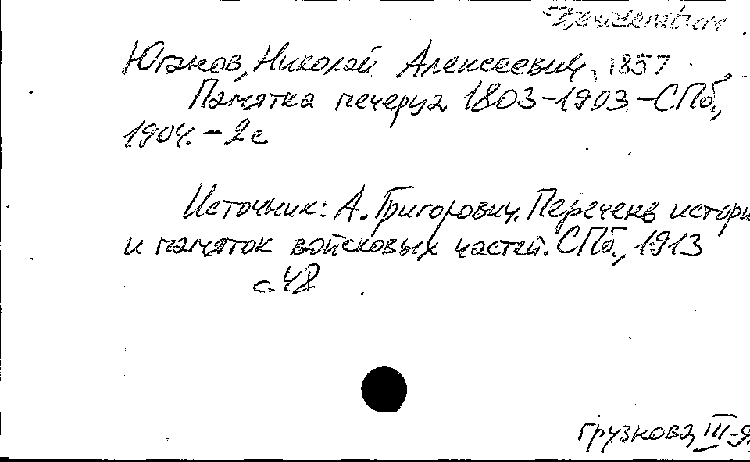 Юганов, Николай Алексеевич, 1857
Памятка печерца 1803-1903.-СПб,
1904.-2с
Источник: А. Григорович. Перечень истори
и памяток войсковых частей. СПб, 1913
с.48
Грузнова, III-9